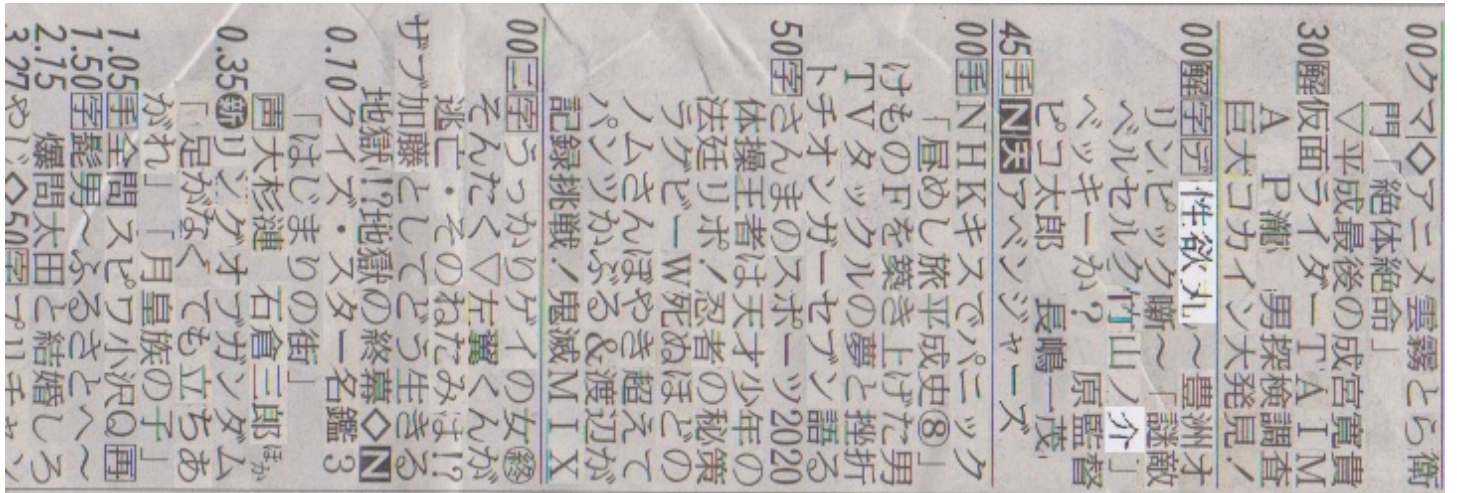 00クマ◇アニメ 雲霧とら衛
門「絶体絶命」
▽平成最後の成宮寛貴
30解仮面ライダーTAIM
A P瀧 男探検調査!
巨大コカイン大発見!
00解字デ性欲丸~豊洲オ
リンピック噺~「謎敵
ベルセルク竹山ノ介」
ベッキーか? 原監督
45手N天アベンジャーズ
ピコ太郎 長嶋一茂
00手NHKキスでパニック
「昼めし旅平成史⑧」
けものFを築き上げた男
TVタックルの夢と挫折
トチオンガーセブン語る
50字さんまのスポーツ2020
体操王者は天才少年の
法廷リポ!忍者の秘策
ラグビーW死ぬほどの
ノムさんぼやき超えて
パンツかぶる&渡辺が
記録挑戦!鬼滅MIX
00二字うっかりゲイの女終
そんたく▽左翼くんが
逃亡・そのおたみは!?
ザブ加藤としてどう生きる
地獄!?地獄の終幕◇N
0.10クイズ・スター名鑑3
「はじまりの街」
声大杉漣 石倉三郎ほか
0.35新リングオブガンダム
「足がなくても立ちあ
がれ」「月皇族の子」
1.05手全問スピワ小沢Q再
1.50字髭男~ぶるさとへ~
2.15 爆問大田と結婚しろ
3.27やじ◇50字プリチャン